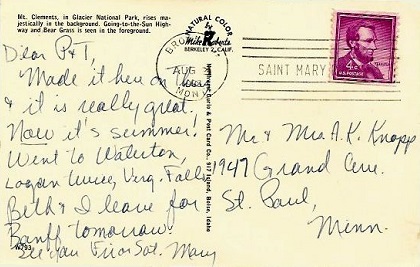 Mt. Clements, in Glacier National Park, rises ma-
jestically in the background. Going-to-the-Sun High-
way and Bear Grass is seen in the foreground.
NATURAL COLOR
Mike Roberts
BERKELEY 2, CALIF.
AUG
MONT
SAINT MARY
4¢
U.S. POSTAGE
Dear P & T,
Made it here on
& it is really great.
Now it's summer.
Went to Waterton,
Logan twice, Virg. Falls
Beth & I leave for
Banff tomorrow.
See you Fri or Sat. Mary
W793
& Post Card Co., 517 Island, Boise, Idaho
Mr & Mrs A. K. Knapp
1947 Grand Ave.
St. Paul,
Minn.